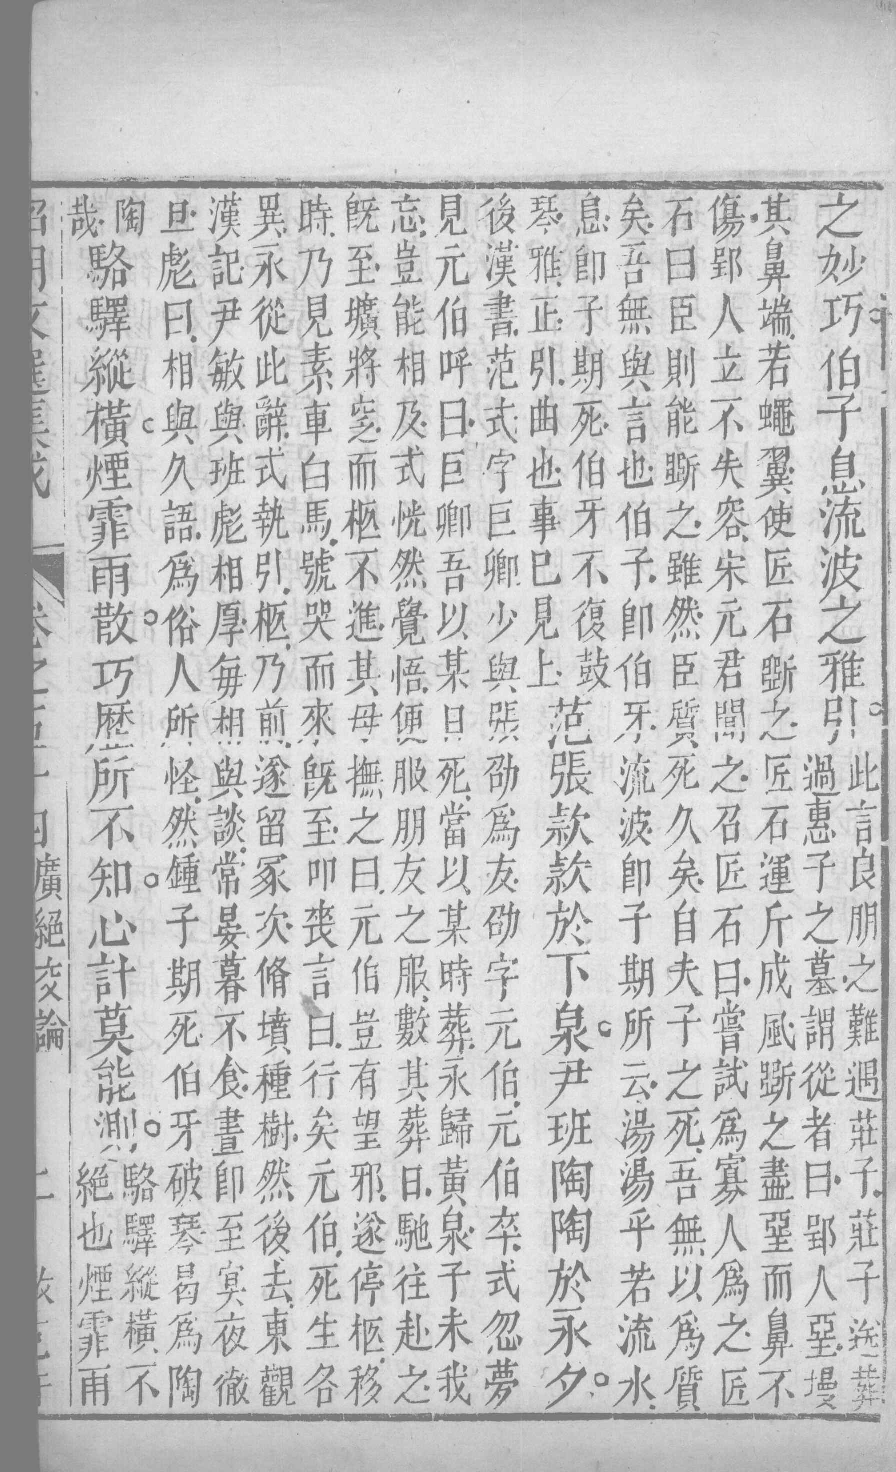 之妙巧伯子息流波之雅引
此言良朋之難遇莊子莊子送葬
過惠子之墓謂從者曰郢人堊墁
其鼻端若蠅翼使匠石斲之匠石運斤成風斲之盡堊而鼻不
傷郢人立不失容宋元君聞之召匠石曰嘗試爲寡人爲之匠
石曰臣則能斲之雖然臣質死久矣自夫子之死吾無以爲質
矣吾無與言也伯子卽伯牙流波卽子期所云湯湯乎若流水
息卽子期死伯牙不復鼓
琴雅正引曲也事已見上
范張款款於下泉尹班陶陶於永夕
後漢書范式字巨卿少與張劭爲友劭字元伯元伯卒式忽夢
見元伯呼曰巨卿吾以某日死當以某時葬永歸黃泉子未我
忘豈能相及式恍然覺悟便服朋友之服數其葬日馳往赴之
旣至壙將窆而柩不進其母撫之曰元伯豈有望邪遂停柩移
時乃見素車白馬號哭而來旣至叩喪言曰行矣元伯死生各
異永從此辭式執引柩乃前遂留冢次脩墳種樹然後去東觀
漢記尹敏與班彪相厚每相與談常晏暮不食晝卽至冥夜徹
旦彪曰相與久語爲俗人所怪然鍾子期死伯牙破琴曷爲陶
陶
哉
駱驛縱橫煙霏雨散巧歷所不知心計莫能測
駱驛縱橫不
絕也煙霏雨
昭明文選集成
廣絕交論